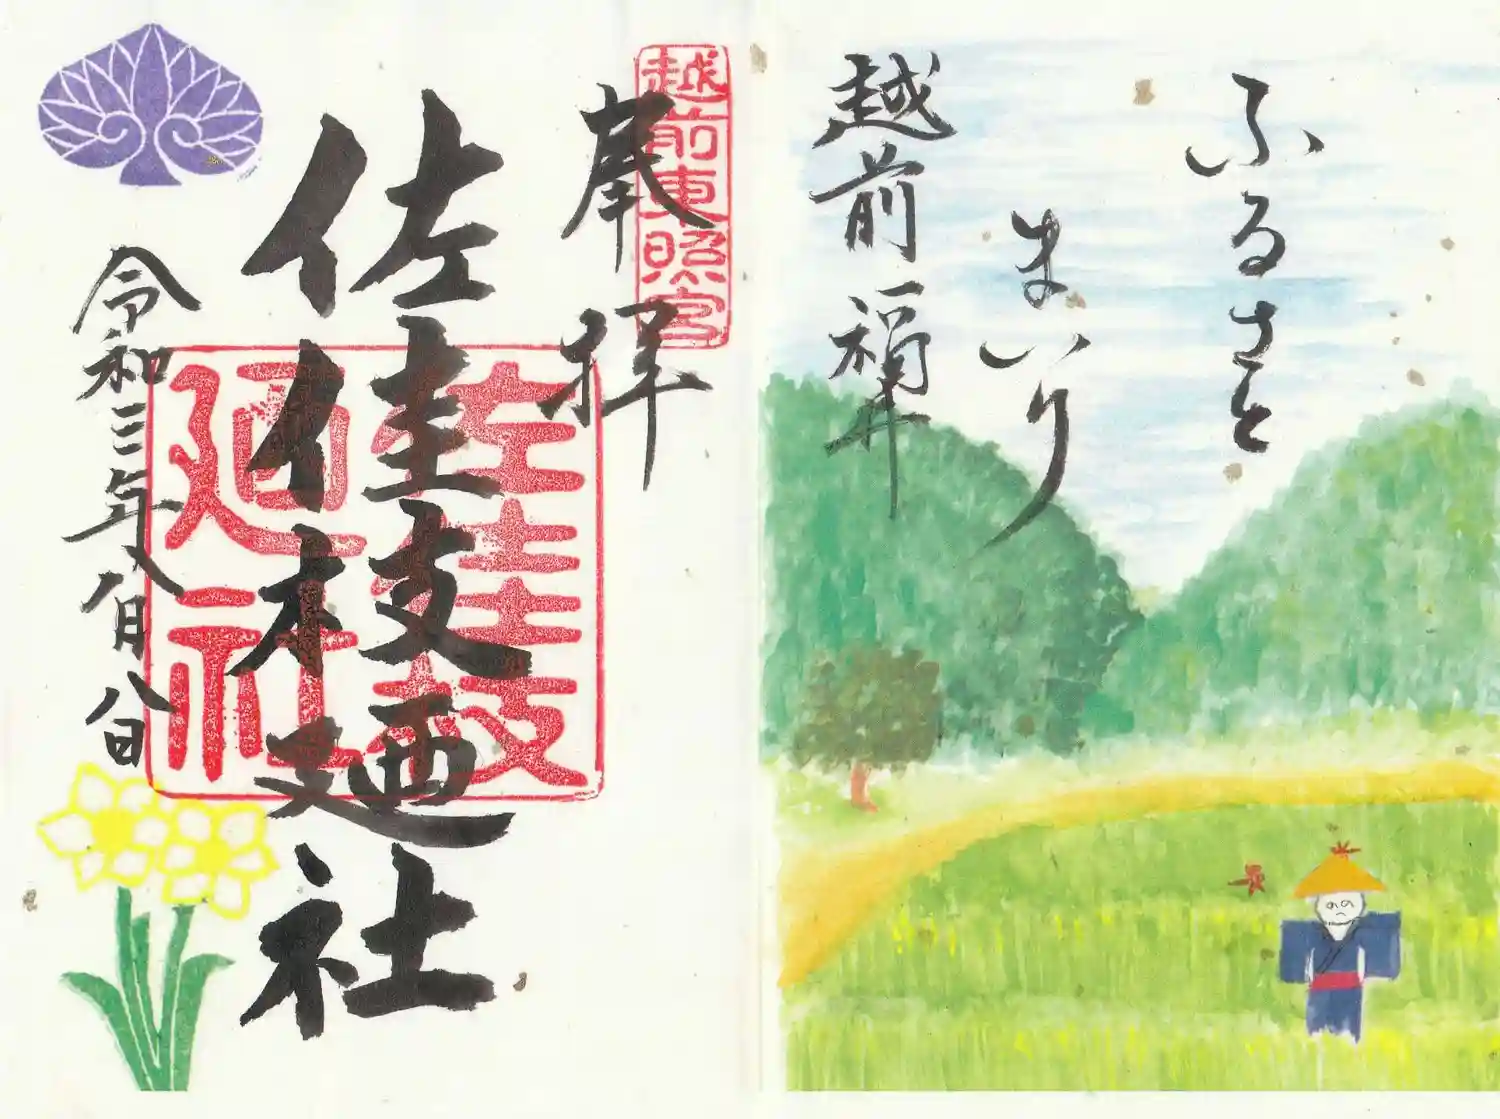 ふるさと
まいり
越前福井
越前東照宮
奉拝
佐佳枝廼社
佐佳枝
廼社
令和三年八月八日